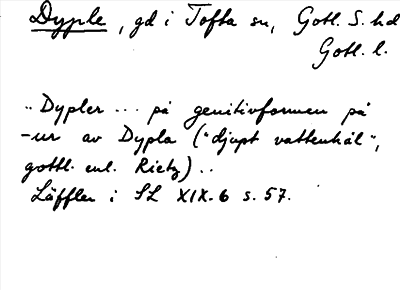 Dyple, gd i Tofta sn, Gotl. S. hd
Gotl. l.
"Dypler ... på genitivformen på
-ur av Dypla ("djupt vattenhål",
gottl. enl. Rietz)..
Läffler i SL XIX.6 s. 57.